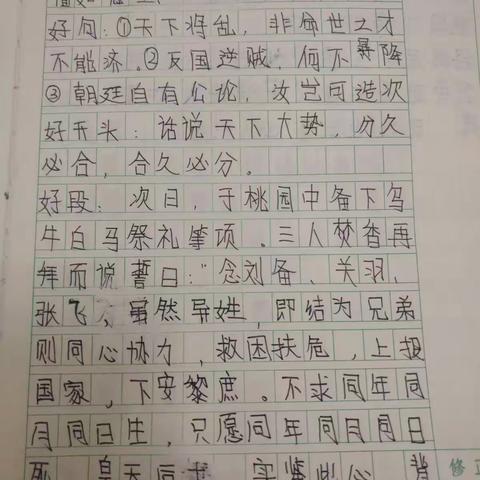 好句：①天下将乱，非命世之才
不能济。②反国逆贼，何不早降
③朝廷自有公论，汝岂可造次
好开头：话说天下大势，分久
必合，合久必分。
好段：次日，于桃园中备下乌
牛白马祭礼等项。三人焚香再
拜而说誓曰："念刘备、关羽、
张飞，虽然异姓，即结为兄弟
则同心协力，救困扶危，上报
国家，下安黎庶。不求同年同
月同日生，只愿同年同月同日
死 皇天后土 实鉴此心 背
修正